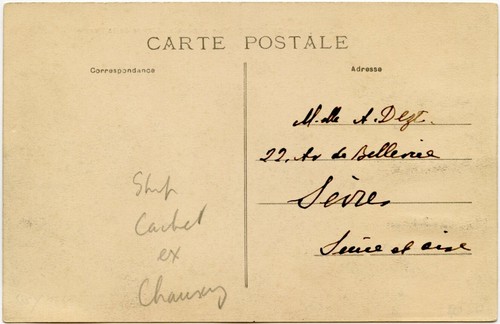 CARTE POSTALE
Correspondance
Adresse
M.lle A. Dezt.
22, Av de Bellevue
Sèvres
Seine et oise
Ship
Cachet
ex